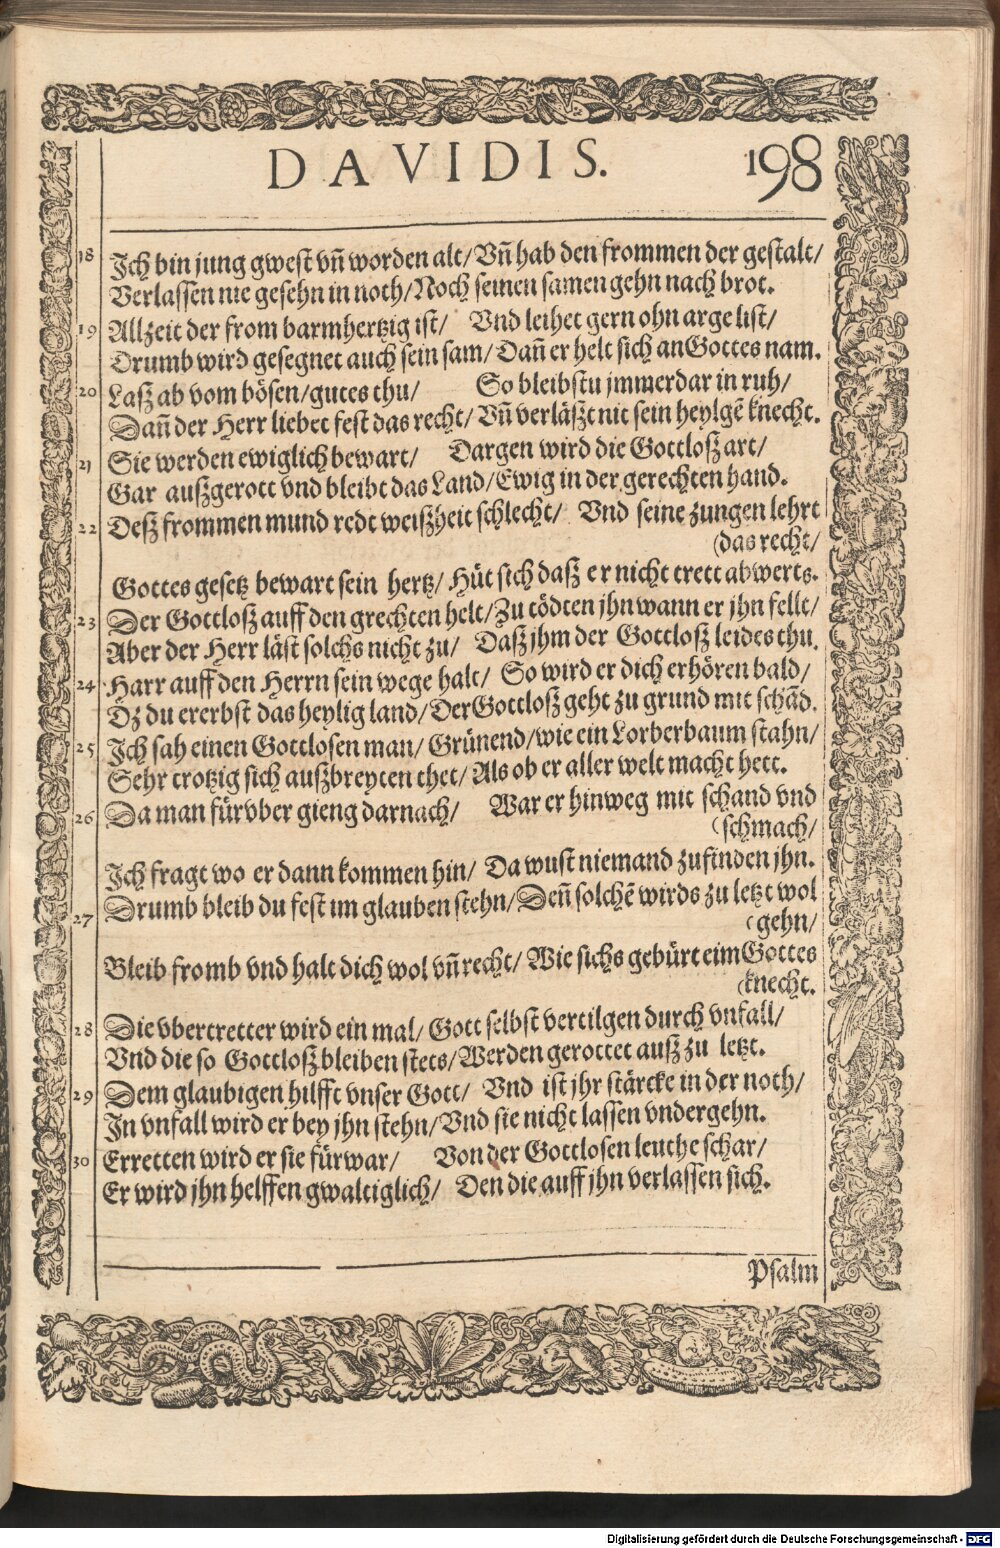 DAVIDIS. 198
18 Ich bin jung gwest vñ worden alt/ Vñ hab den frommen der gestalt/
Verlassen nie gesehn in noth/ Noch seinen samen gehn nach brot.
19 Allzeit der from barmhertzig ist/ Vnd leihet gern ohn arge list/
Drumb wird gesegnet auch sein sam/ Dañ er helt sich an Gottes nam.
20 Laß ab vom bösen/ gutes thu/ So bleibstu jmmerdar in ruh/
Dañ der Herr liebet fest das recht/ Vñ verläßt nit sein heylgē knecht.
21 Sie werden ewiglich bewart/ Dargen wird die Gottloß art/
Gar außgerott vnd bleibt das Land/ Ewig in der gerechten hand.
22 Deß frommen mund redt weißheit schlecht/ Vnd seine zungen lehrt
(das recht/
Gottes gesetz bewart sein hertz/ Hüt sich daß er nicht trett abwerts.
23 Der Gottloß auff den grechten helt/ Zu tödten jhn wann er jhn fellt/
Aber der Herr läst solchs nicht zu/ Daß jhm der Gottloß leides thu.
24 Harr auff den Herrn sein wege halt/ So wird er dich erhören bald/
Dz du ererbst das heylig land/ Der Gottloß geht zu grund mit schād.
25 Ich sah einen Gottlosen man/ Grünend/ wie ein Lorberbaum stahn/
Sehr trotzig sich außbreyten thet/ Als ob er aller welt macht hett.
26 Da man fürvber gieng darnach/ War er hinweg mit schand vnd
(schmach/
Ich fragt wo er dann kommen hin/ Da wust niemand zufinden jhn.
27 Drumb bleib du fest im glauben stehn/ Deñ solchē wirds zu letzt wol
(gehn/
Bleib fromb vnd halt dich wol vñ recht/ Wie sichs gebürt eim Gottes
(knecht.
28 Die vbertretter wird ein mal/ Gott selbst vertilgen durch vnfall/
Vnd die so Gottloß bleiben stets/ Werden gerottet auß zu letzt.
29 Dem glaubigen hilfft vnser Gott/ Vnd ist jhr stärcke in der noth/
In vnfall wird er bey jhn stehn/ Vnd sie nicht lassen vndergehn.
30 Erretten wird er sie fürwar/ Von der Gottlosen leuthe schar/
Er wird jhn helffen gwaltiglich/ Den die auff jhn verlassen sich.
Psalm
Digitalisierung gefördert durch die Deutsche Forschungsgemeinschaft - DFG